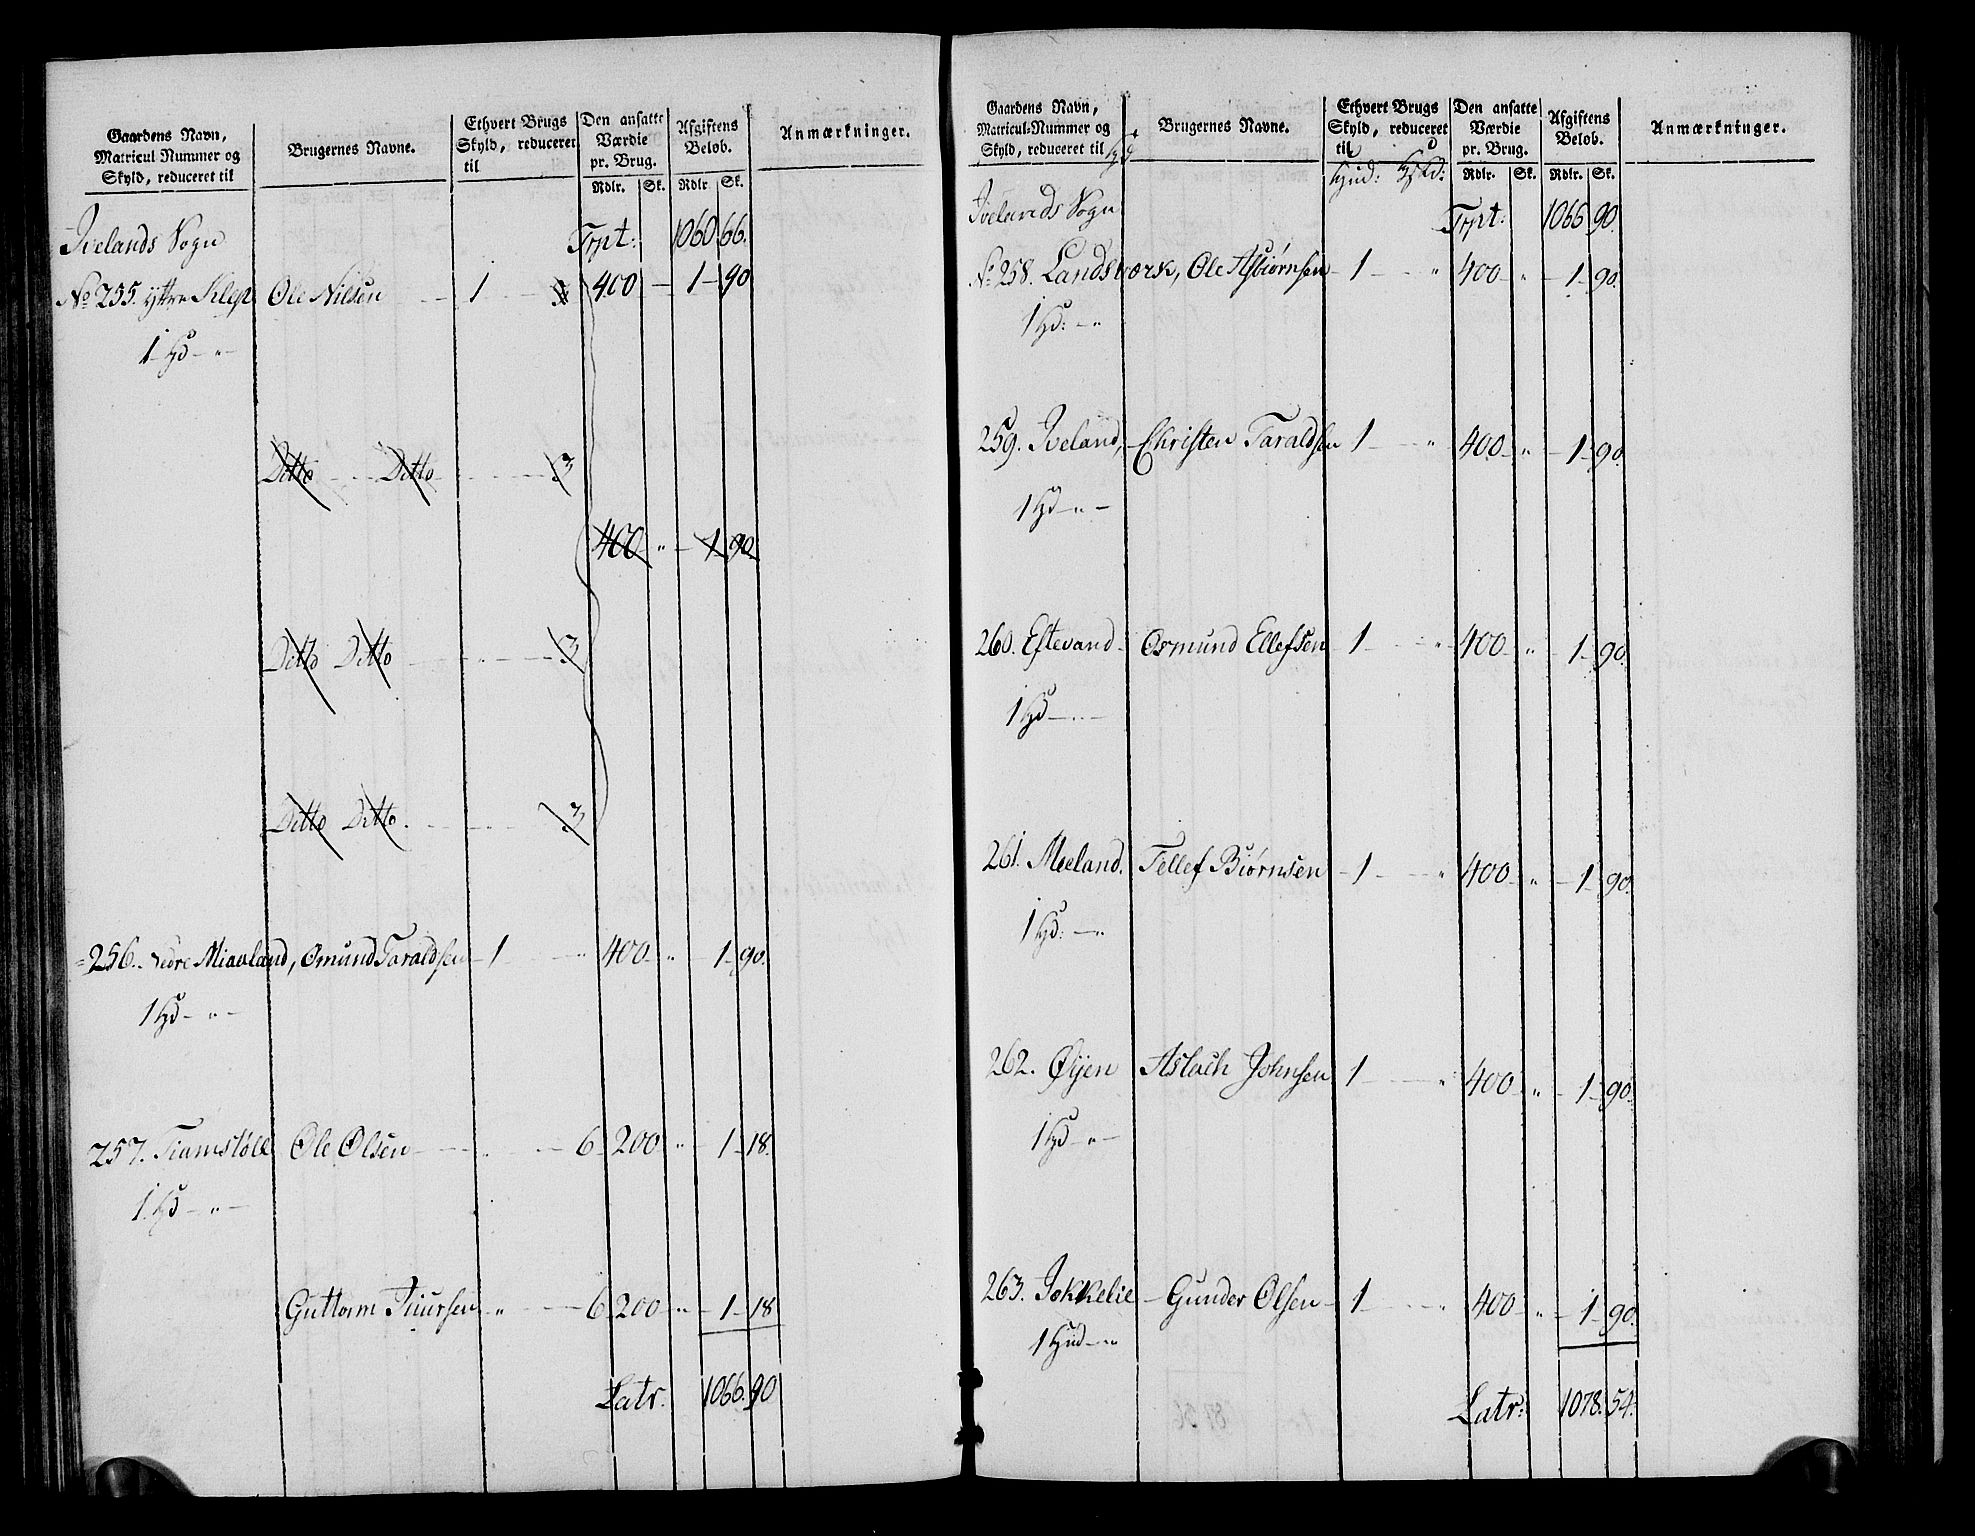 Gaardens Navn,
Matricul Nummer og
Skyld, reduceret til
Brugernes Navne.
Ethvert Brugs
Skyld, reduceret
til
Den ansatte
Værdie
pr. Brug.
Rdlr. Sk.
Afgiftens
Beløb.
Rdlr. Sk.
Anmærkninger.
Ivelands Sogn Trpt: 1060 66.
No 255. Yttre Klep Ole Nilsen 1 400 — 1 — 90
1 Hd — " —
Ditto Ditto 3
400 " — 1 90
Ditto Ditto 3
Ditto Ditto 3
256. Nedre Miavland, Omund Taraldsen 1 " 400 " 1 — 90.
1 Hd — " —
257. Tiamstøll Ole Olsen " 6 200 " 1 — 18.
1 Hd — " —
Guttorm Siursen " 6 200 " 1 — 18
Latr. 1066. 90
Gaardens Navn,
Matricul-Nummer og
Skyld, reduceret til Hd
Brugernes Navne.
Ethvert Brugs
Skyld, reduceret
til
Hud:
Den ansatte
Værdie
pr. Brug.
Rdlr. Sk.
Afgiftens
Beløb.
Rdlr. Sk.
Anmærkninger.
Ivelands Sogn Trpt: 1066 90.
No 258. Landsværk, Ole Asbiørnsen 1 " 400 " 1 — 90.
1 Hd: — "
259. Iveland, Christen Taraldsen 1 " 400 " 1 — 90.
1 Hd " —
260. Eftevand Osmund Ellefsen 1 " 400 " 1 — 90.
1 Hd — " —
261. Meeland. Tellef Biørnsen 1 " 400 " 1 — 90.
1 Hd: — "
262. Øyen Aslach Johnsen 1 " 400 " 1 — 90.
1 Hd — " —
263. Jokkelie Gunder Olsen 1 " 400 " 1 — 90.
1 Hud — "
Latr: 1078. 54.